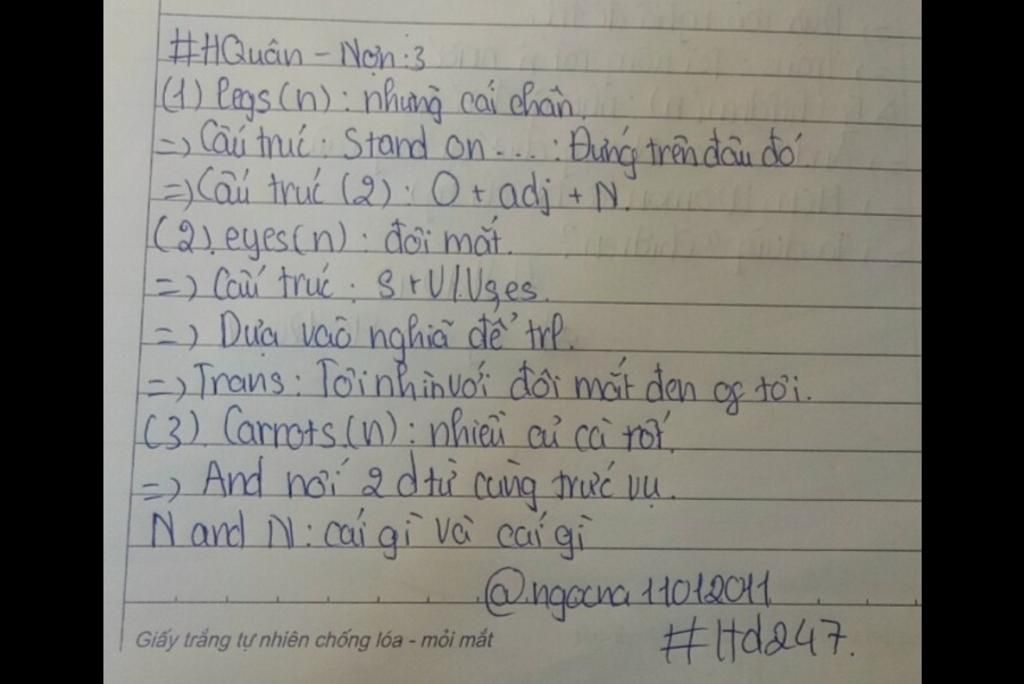 #HQuân - Nợn:3
(1) legs(n): những cái chân.
=> Cấu trúc: Stand on ...: Đứng trên đâu đó
=> Cấu trúc (2): O + adj + N.
(2) eyes(n): đôi mắt.
=> Cấu trúc: S + V/Vs,es.
=> Dựa vào nghĩa để trl.
=> Trans: Tôi nhìn với đôi mắt đen of tôi.
(3) Carrots(n): nhiều củ cà rốt.
=> And nối 2 dtừ cùng trức vụ.
N and N: cái gì và cái gì
@ngocna11012011
Giấy trắng tự nhiên chống lóa - mỏi mắt
#Hd247.